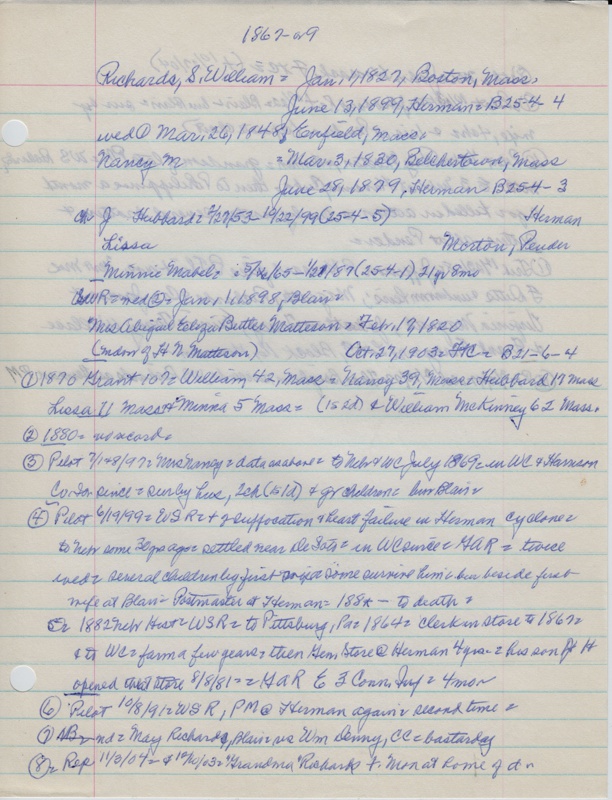 1867-or9
Richards, S. William = Jan, 1, 1827, Boston, Mass.
June 13, 1899, Herman = B25-4- 4
wed @ Mar, 26, 1848, Enfield, Mass.
Nancy M = Mar. 3, 1830, Belchertown, Mass
June 28, 1879, Herman = B25-4-3
ch J Hubbard = 7/27/53 - 10/22/99 (25-4-5) Herman
Lissa Morton, Pender
Minnie Mabel = 5/16/65 - 1/28/87 (25-4-1) 21 yr 8mo
WR = wed ② = Jan, 1, 1898, Blair =
Mrs Abigail Butler Matteson = Feb. 17, 1820
(widow of H N Matteson) Oct. 27, 1903 = HC = B21-6-4
① 1870 Grant 107 = William 42, Mass = Nancy 39, Mass = Hubbard 17 Mass
Lissa 11 Mass + Minna 5 Mass = (1s2d) & William McKinney 62 Mass.
② 1880 = no record =
③ Pilot 7/1 = Mrs Nancy = data as above = to Neb & WC July 1869 = in WC & Harrison
Co. Ia. since = sur by hus, 2ch (1s1d) & gr children = bur Blair =
④ Pilot 6/19/99 = WSR = + suffocation & heart failure in Herman cyclone =
to Neb some 30 yrs ago = settled near De Soto = in WC since = GAR = twice
wed = several children by first some survive him = bur beside first
wife at Blair = Postmaster at Herman = 188x - to death =
1882 Neb Hist = WSR = to Pittsburg, Pa = 1864 = clerk in store to 1867 =
& to WC = farm a few years = then Gen. Store @ Herman 4 yrs = his son J H
opened that store 8/8/81 = = GAR E 3 Conn. Inf = 4 mo
⑥ Pilot 10/8/91 = WSR, PM @ Herman again = second time =
nd = May Richards, Blair vs Wm Denny, CC = bastardy
⑧ = Rep 11/2/04 = & 10/30/03 = Grandma Richards + Mon at home of d =